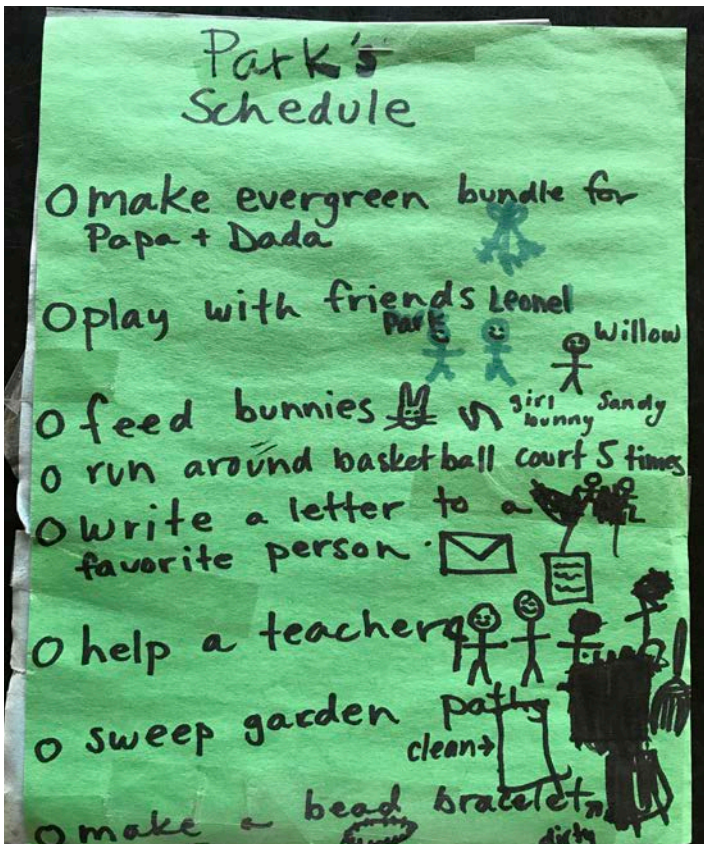 Park's
Schedule
O make evergreen bundle for
Papa + Dada
O play with friends Leonel
Park
Willow
O feed bunnies girl bunny Sandy
O run around basketball court 5 times
O write a letter to a
favorite person.
O help a teacher
O sweep garden path
clean→
O make a bead bracelet
dirty